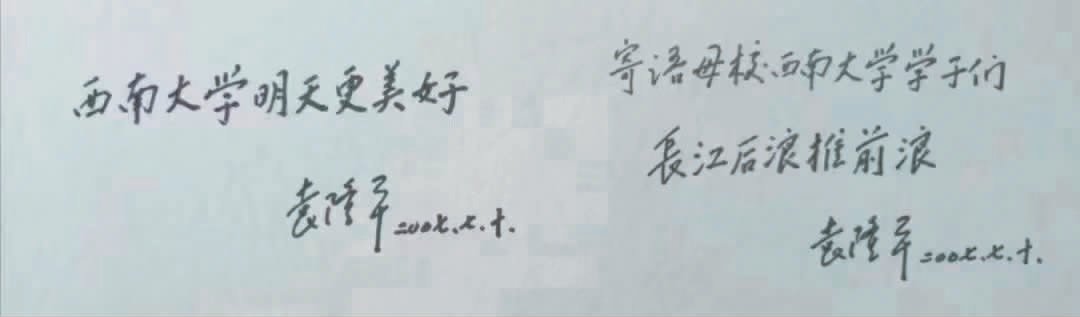 西南大学明天更美好
袁隆平 二00七.七.十.
寄语母校西南大学学子们
長江后浪推前浪
袁隆平 二00七.七.十.